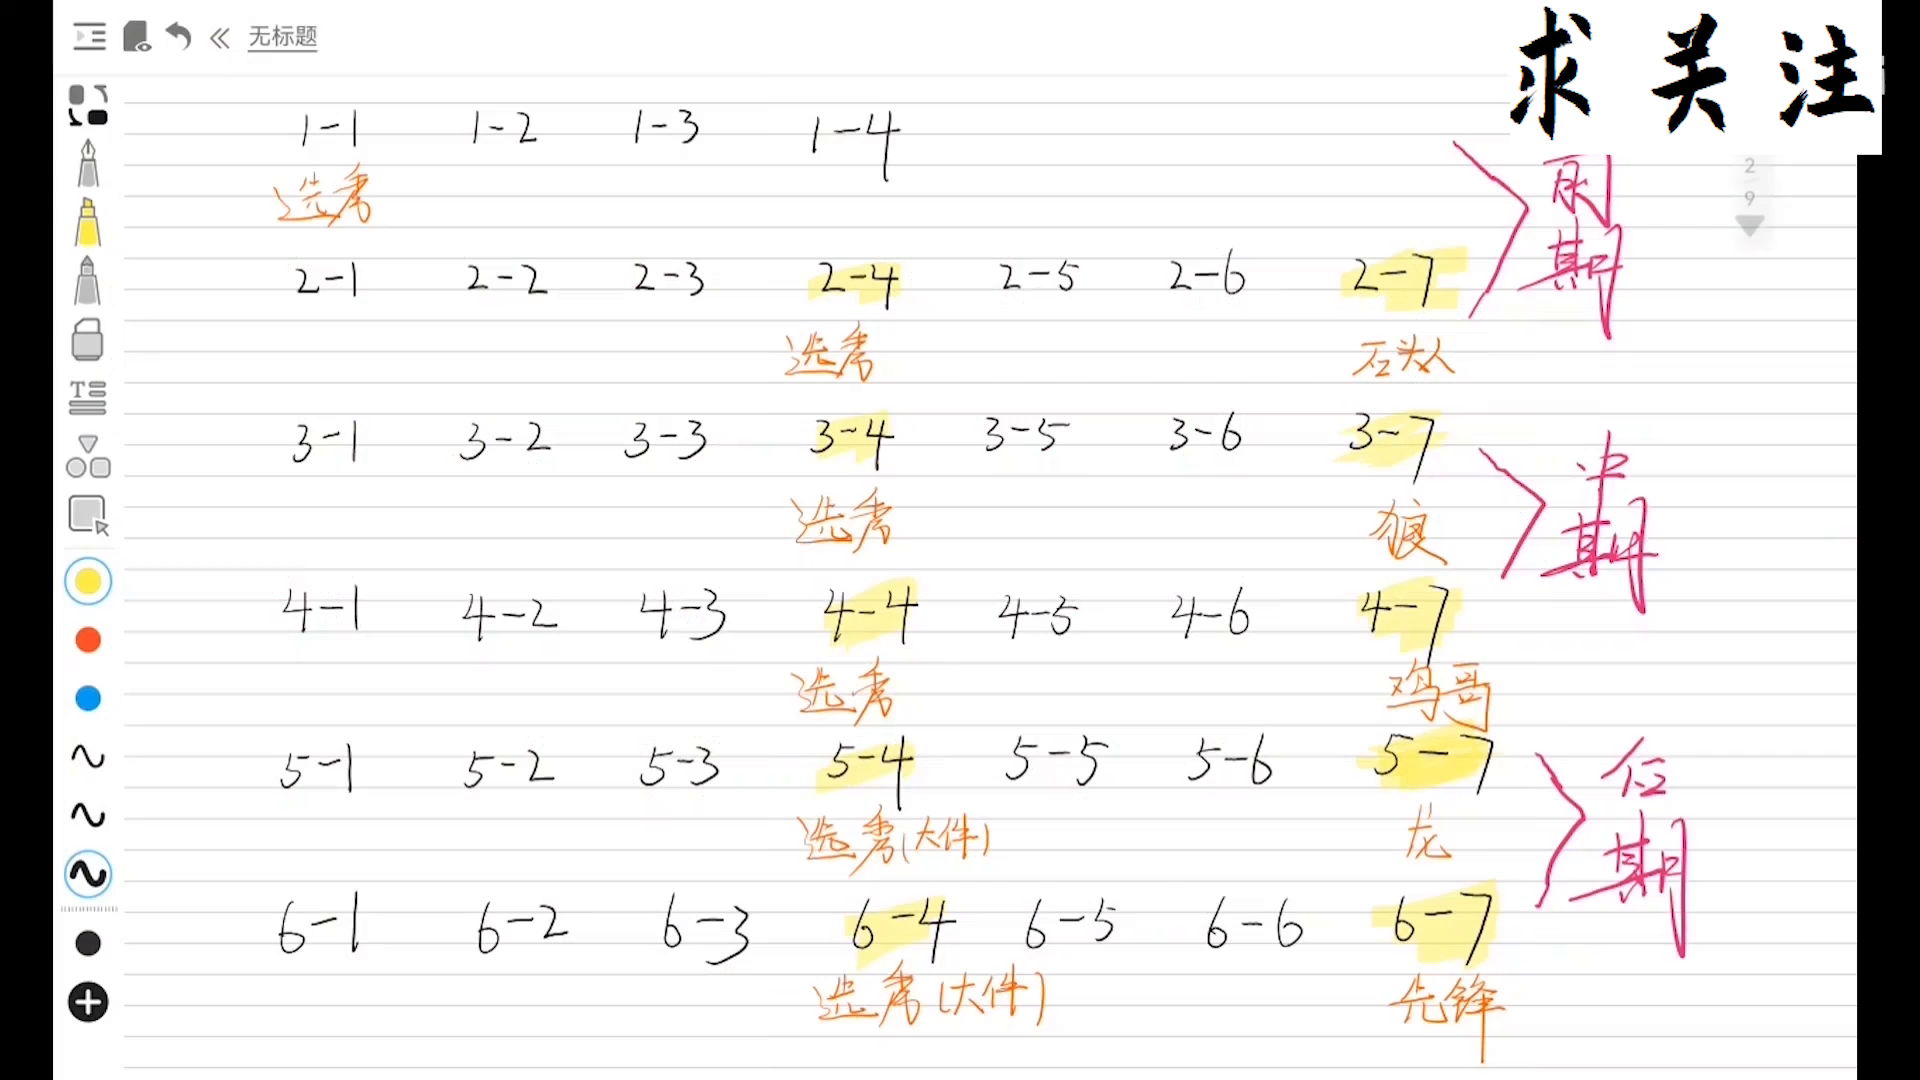 无标题
求关注
1-1 1-2 1-3 1-4
选秀
前期
2
9
2-1 2-2 2-3 2-4 2-5 2-6 2-7
选秀 石头人
3-1 3-2 3-3 3-4 3-5 3-6 3-7
中期
选秀 狼
4-1 4-2 4-3 4-4 4-5 4-6 4-7
选秀 鸡哥
5-1 5-2 5-3 5-4 5-5 5-6 5-7
后期
选秀(大件) 龙
6-1 6-2 6-3 6-4 6-5 6-6 6-7
选秀(大件) 先锋